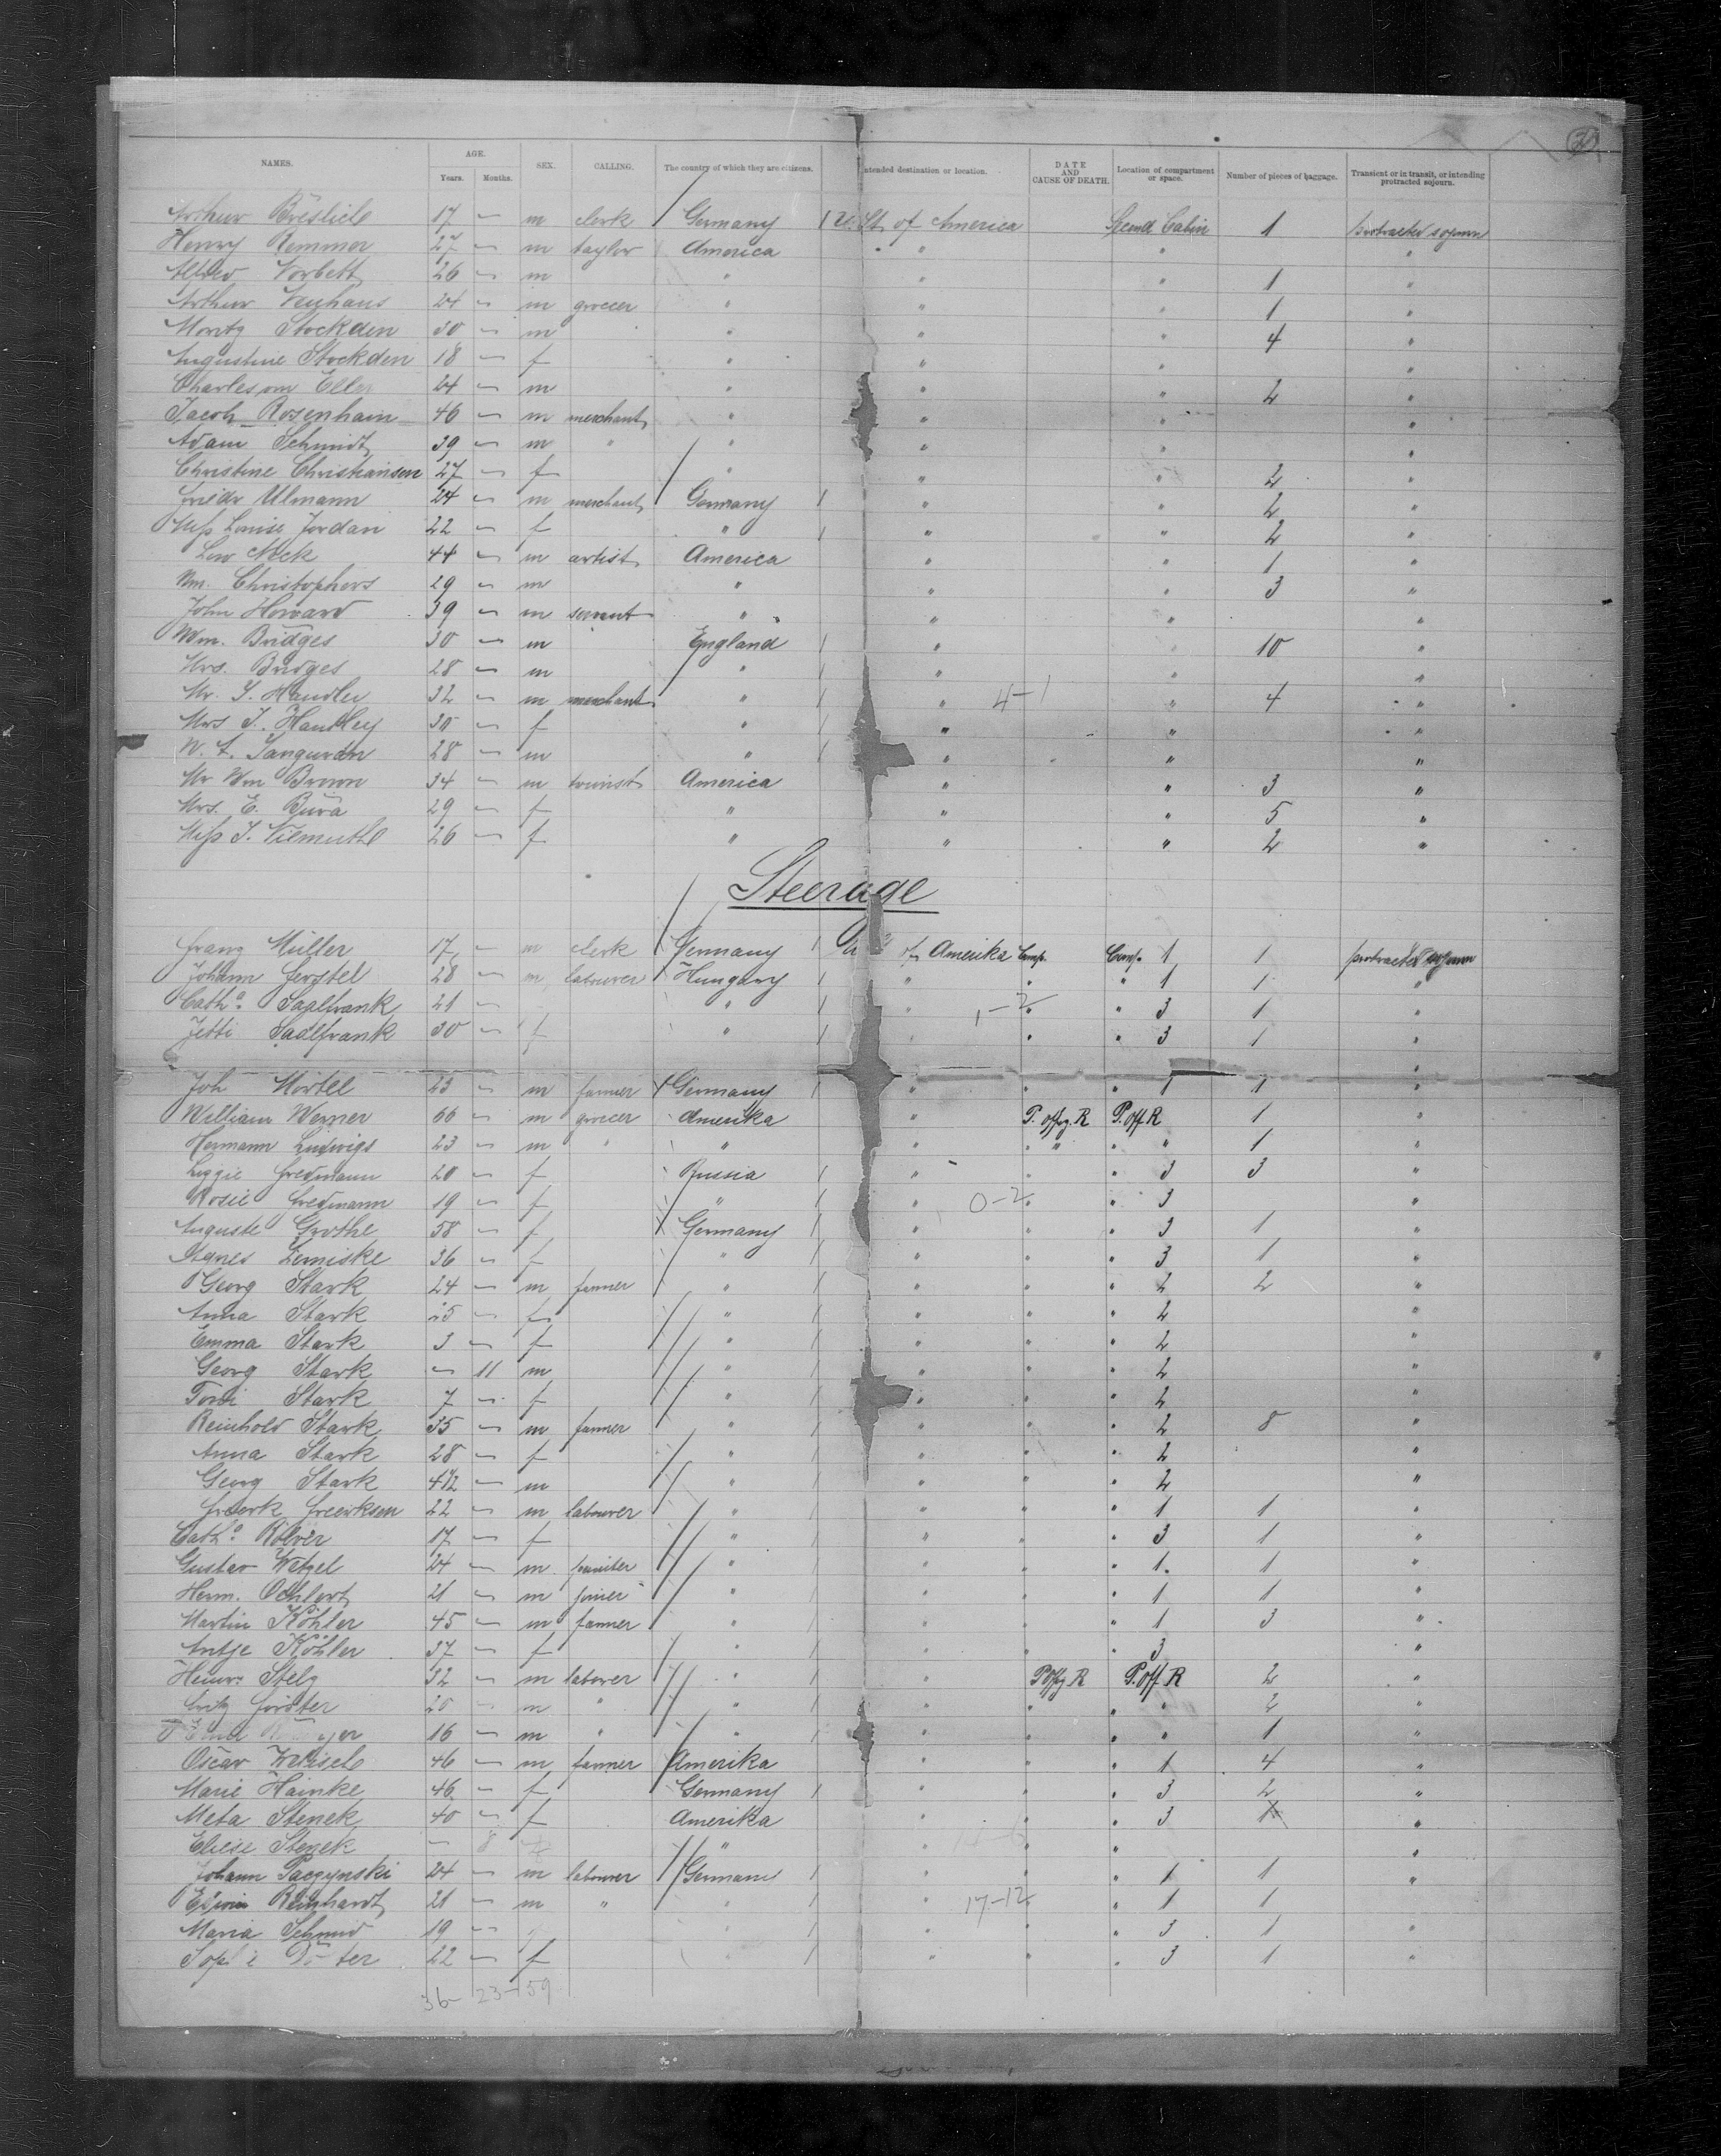 NAMES. AGE. Years. Months. SEX. CALLING. The country of which they are citizens. Intended destination or location. DATE AND CAUSE OF DEATH. Location of compartment or space. Number of pieces of baggage. Transient or in transit, or intending protracted sojourn.
Arthur 17 — m clerk Germany 1 U. St. of America Second Cabin 1 protracted sojourn
Henry Remmer 27 — m taylor America " " " "
26 — m " " " 1 "
Arthur Neuhaus 24 — m grocer " " " 1 "
Moritz Stockden 30 — m " " " 4 "
Augustine Stockden 18 — f " " " "
Charles 24 — m " " " 2 "
Jacob Rosenhain 46 — m merchant " " " "
Adam Schmidt 39 — m " " " " "
Christine Christiansen 27 — f " " " 2 "
Friedr Ulmann 24 — m merchant Germany 1 " " 2 "
Miss Louise Jordan 22 — f " 1 " " 2 "
44 — m artist America " " 1 "
Wm. Christophers 29 — m " " " 3 "
John Howard 39 — m servant " " " "
Wm. Bridges 30 — m England 1 " " 10 "
Mrs. Bridges 28 — m " 1 " " "
Mr. J. Handley 32 — m merchant " 1 " 4-1 " 4 "
Mrs J. Handley 30 — f " 1 " " "
W. A. 28 — m " 1 " " "
Mr Wm Brown 34 — m tourist America " " 3 "
Mrs. E. Bura 29 — f " " " 5 "
Miss J. 26 — f " " " 2 "
Steerage
Franz Müller 17 — m clerk Germany 1 of Amerika Comp. Comp. 1 1 protracted sojourn
Johann Gerstel 28 — m labourer Hungary 1 " " " 1 1 "
Cath. Saalfrank 21 — " 1 " 1-2 " " 3 1 "
Jetti Saalfrank 30 — f " 1 " " " 3 1 "
Joh 23 — m farmer Germany 1 " " " 1 1 "
William Werner 66 — m grocer Amerika " P. offz. R P. off R 1 "
Hermann Ludwigs 23 — m " " " " " 1 "
Lizzie Fredmann 20 — f Russia 1 " " " 3 3 "
Rosie Fredmann 19 — f " 1 " 0-2 " " 3 "
Auguste Grothe 58 — f Germany 1 " " " 3 1 "
Agnes Zemiske 36 — f " 1 " " " 3 1 "
Georg Stark 24 — m farmer " 1 " " " 2 2 "
Anna Stark 25 — f " 1 " " " 2 "
Emma Stark 3 — f " 1 " " " 2 "
Georg Stark — 11 m " 1 " " " 2 "
Toni Stark 7 — f " 1 " " " 2 "
Reinhold Stark 35 — m farmer " 1 " " " 2 8 "
Anna Stark 28 — f " 1 " " " 2 "
Georg Stark 4 1/2 — m " 1 " " " 2 "
Freerk Freerksen 22 — m labourer " 1 " " " 1 1 "
Cath. Rolver 17 — f " 1 " " " 3 1 "
Gustav Wetzel 24 — m painter " 1 " " " 1 1 "
Herm. 21 — m joiner " 1 " " " 1 1 "
Martin Köhler 45 — m farmer " 1 " " " 1 3 "
Antje Köhler 37 — f " 1 " " " 3 "
Heinr. Stelz 32 — m laborer " 1 " P offz R P. off R 2 "
Fritz Förster 20 — m " " 1 " " " 2 "
16 — m " " 1 " " " 1 "
Oscar 46 — m farmer Amerika " " " 1 4 "
Marie Hainke 46 — f Germany 1 " " " 3 2 "
Meta Stenek 40 — f Amerika " " " 3 "
Eliese Stenek — 8 f " " " " "
Johann Paczynski 24 — m labourer Germany 1 " " " 1 1 "
Edwin Reinhardt 21 — m " " 1 " 17-12 " " 1 1 "
Maria Schmid 19 — " 1 " " " 3 1 "
22 — f " 1 " " " 3 1 "
36- 23- 59